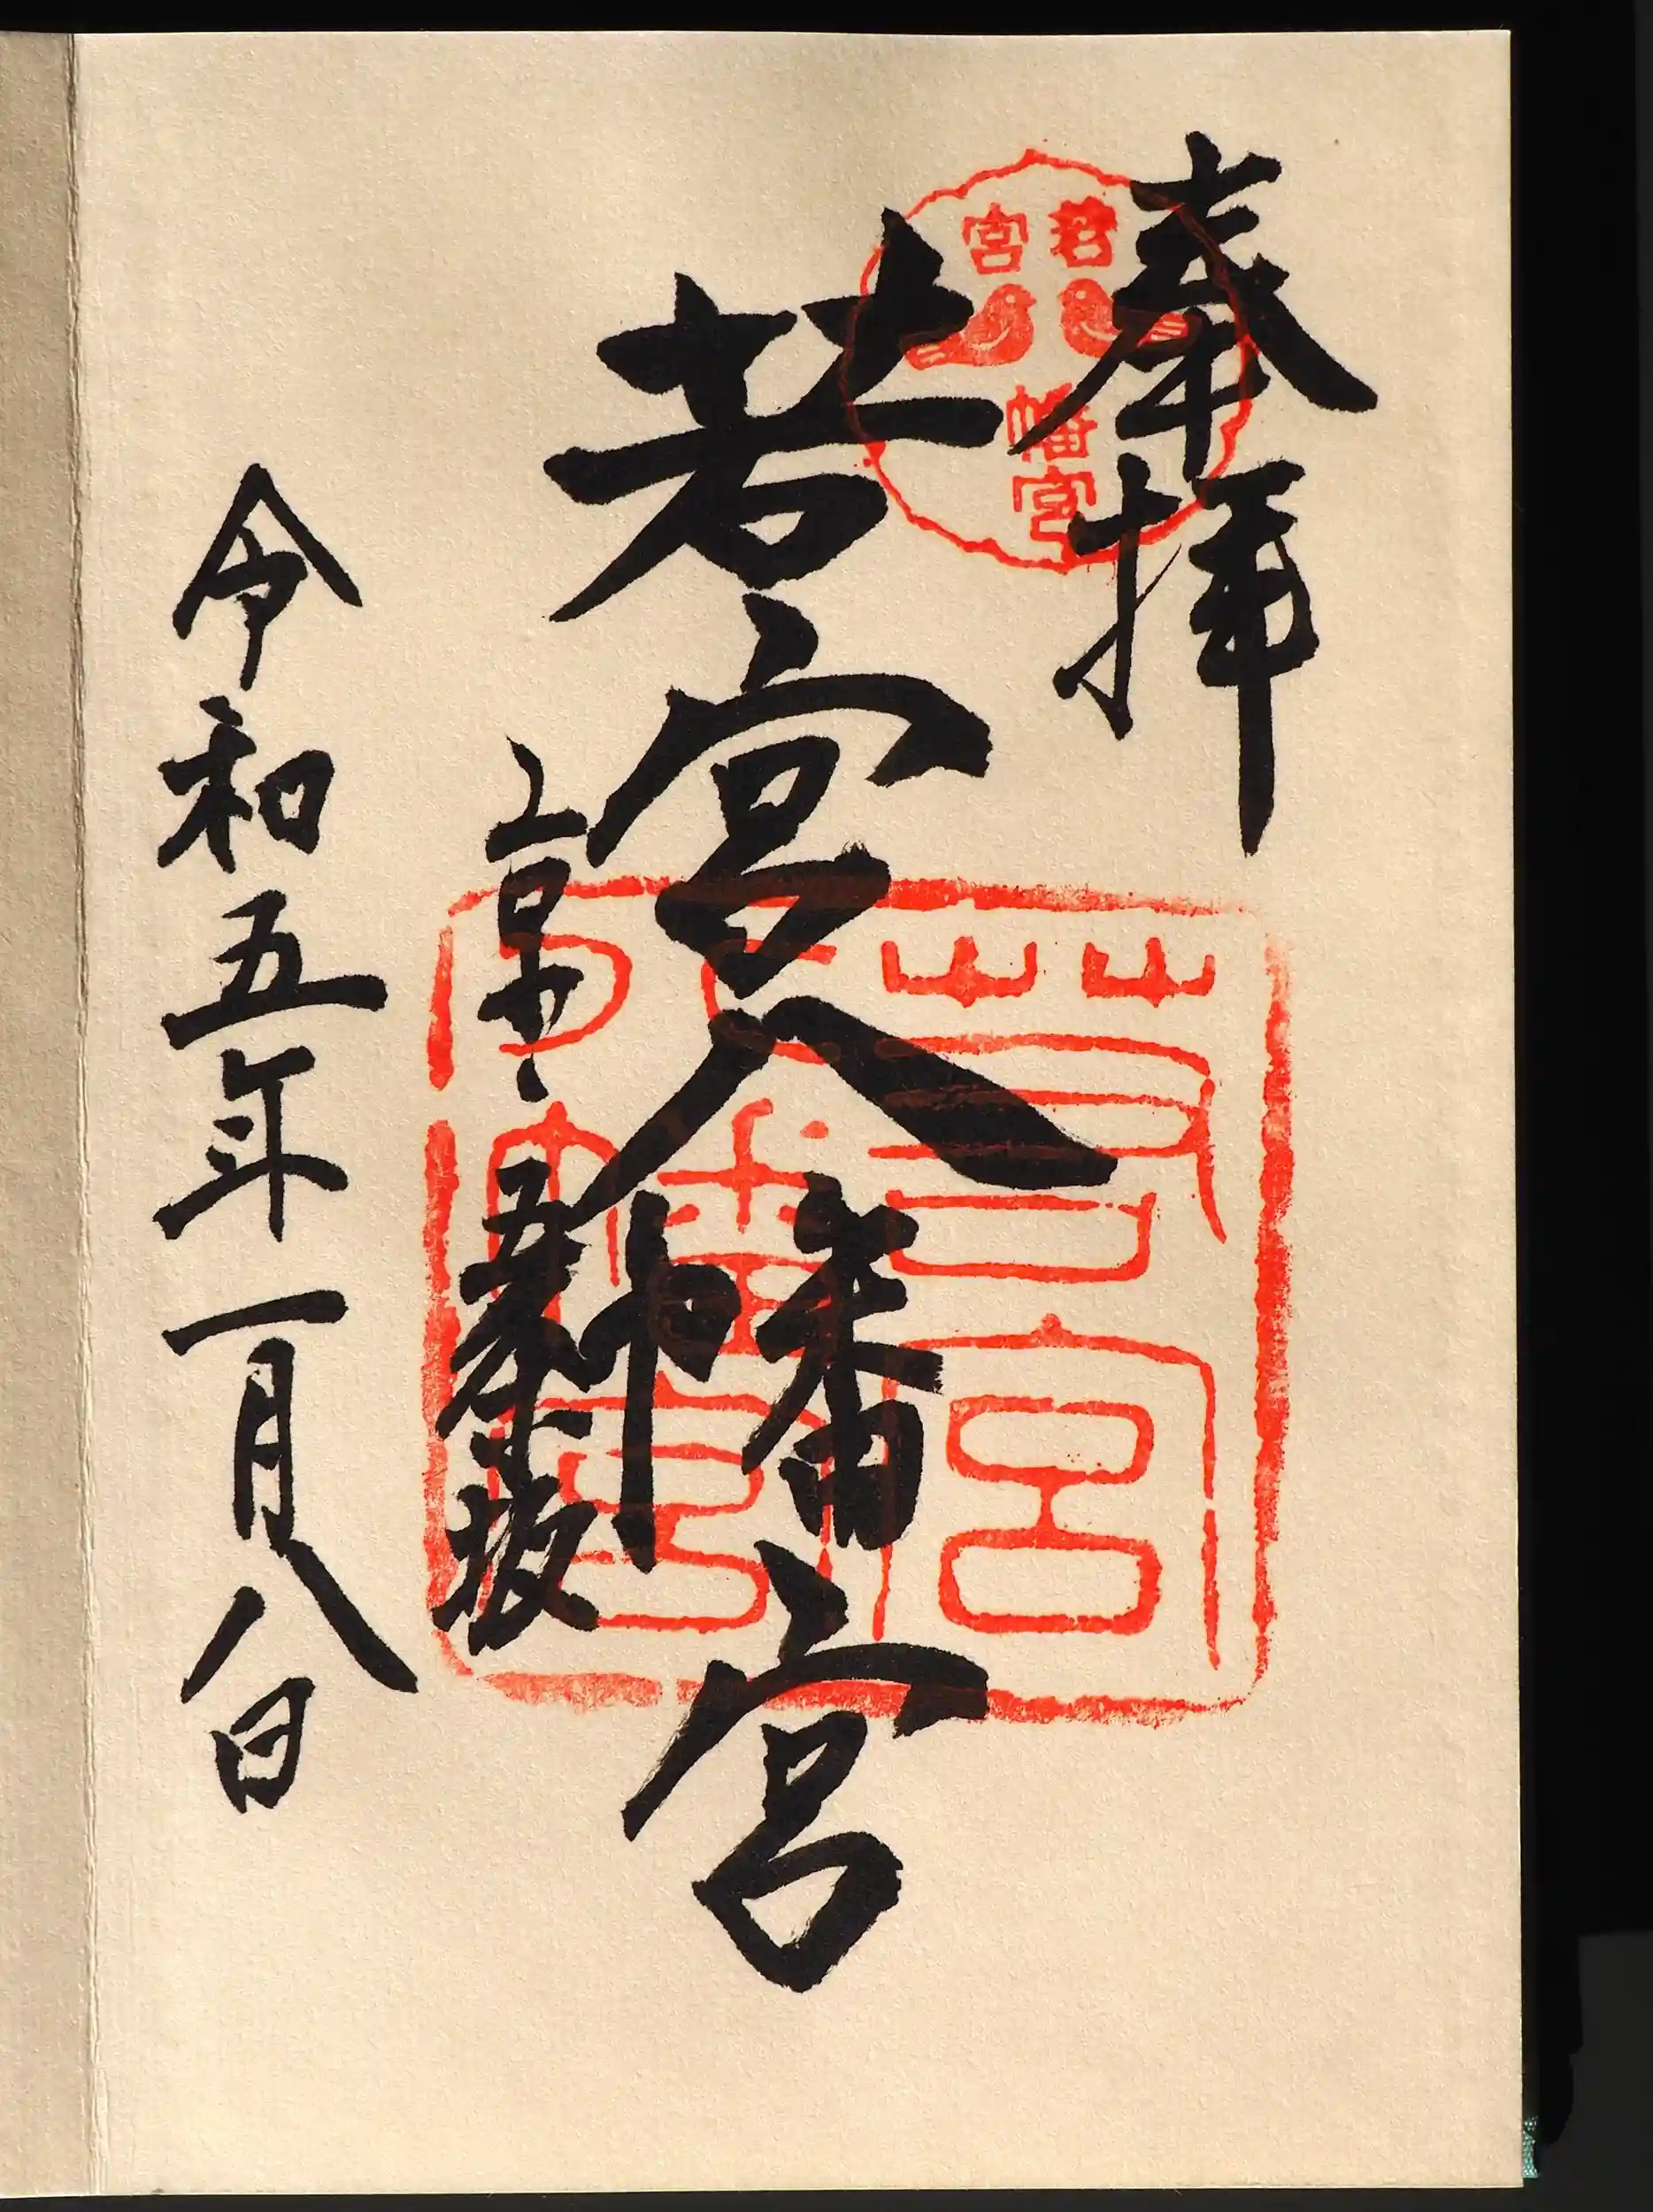 奉拝
若宮八幡宮
京都 五条坂
令和五年一月八日
若宮
幡宮
若宮
八幡宮